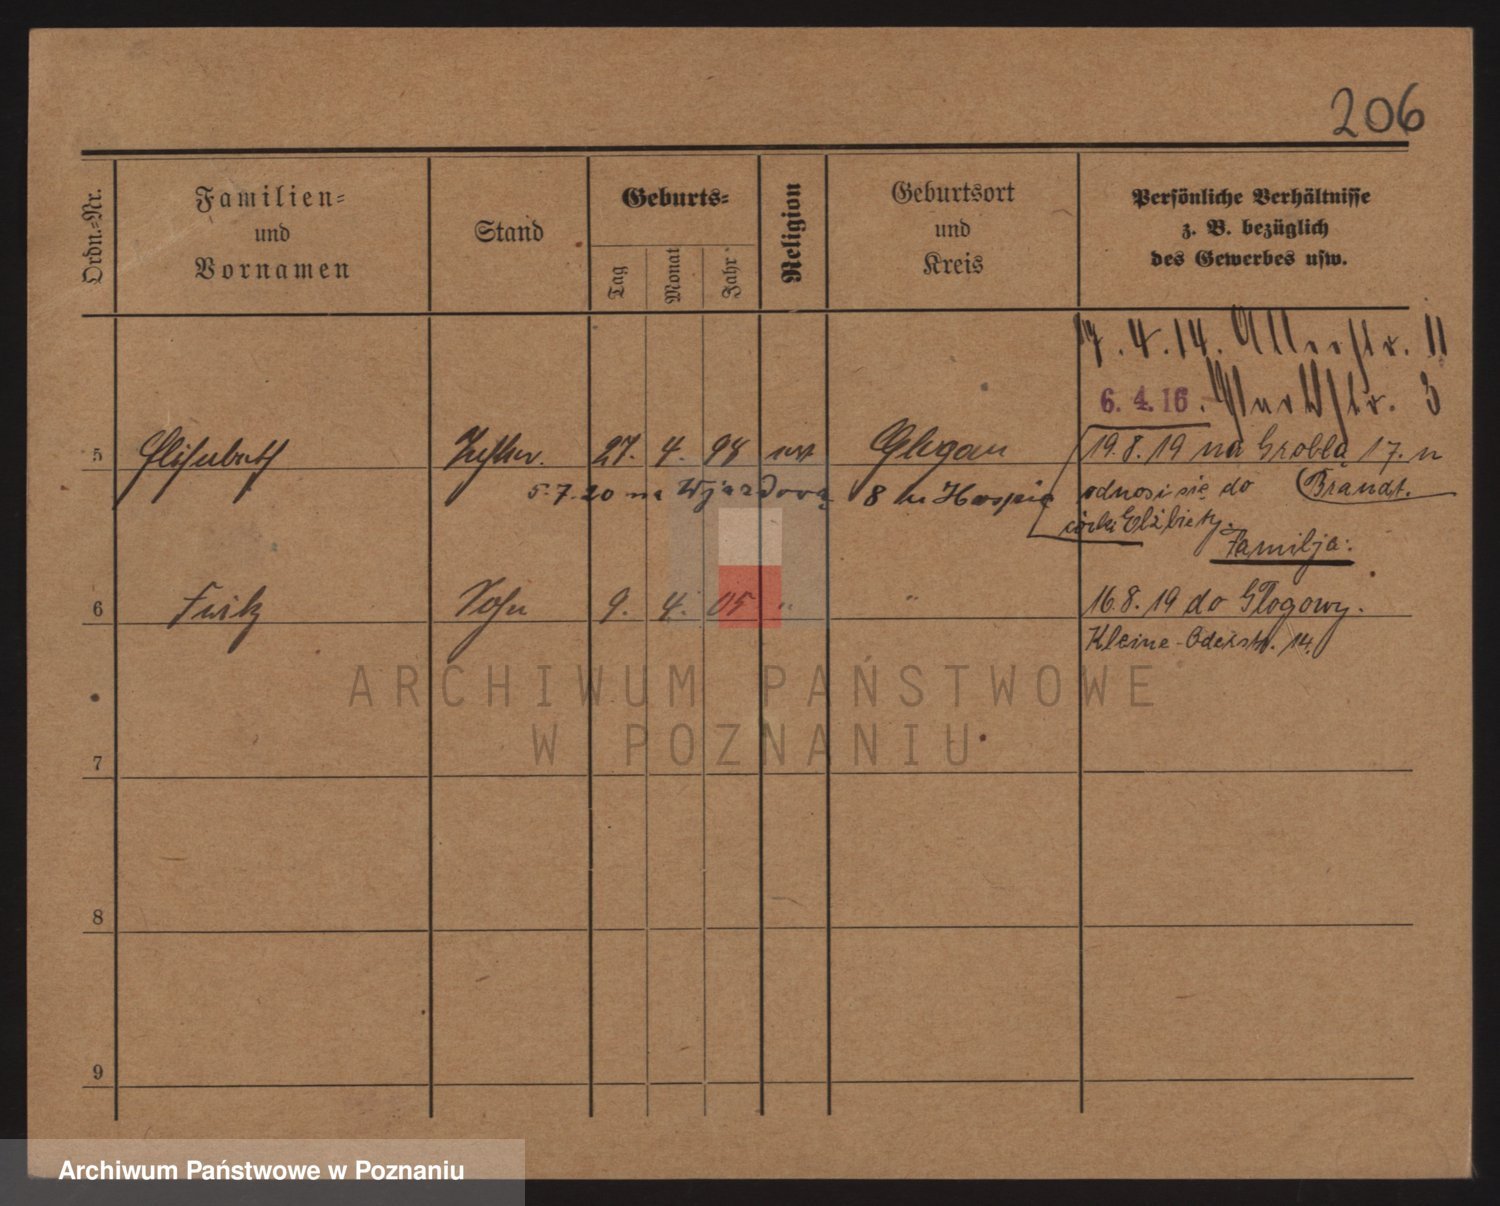 206
Ordn.-Nr.
Familien-
und
Vornamen
Stand
Geburts-
Tag
Monat
Jahr
Religion
Geburtsort
und
Kreis
Persönliche Verhältnisse
z. B. bezüglich
des Gewerbes usw.
17. 4. 14. 11
6. 4. 16. 3
5 Elisabeth Tochter. 27. 4. 98 Glogau 19. 8. 19 na Grobla 17. u
5. 7. 20 na Wjazdową 8 odnosi się do Brandt.
córki Elżbiety.
Familja:
6 Fritz Sohn 9. 4. 05 " " 16. 8. 19 do Głogowy.
Kleine-Oderstr. 14.
7
8
9
ARCHIWUM PAŃSTWOWE
W POZNANIU
Archiwum Państwowe w Poznaniu